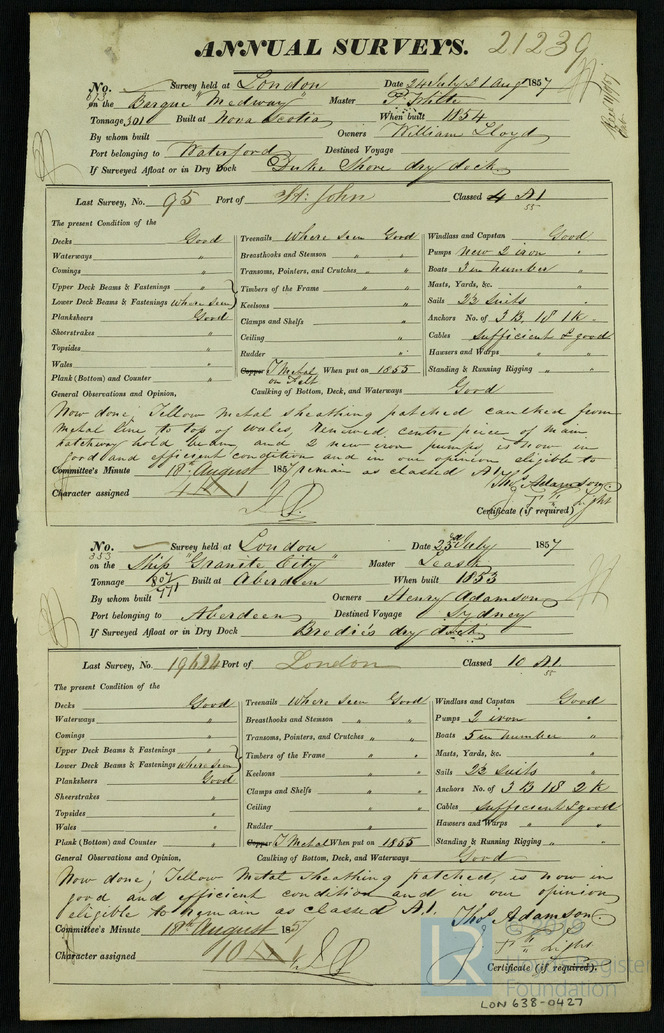 ANNUAL SURVEYS. 21239
No. Survey held at London Date 24 July 21 Augt 1857
on the Barque "Medway" Master P. White
Tonnage 301 Built at Nova Scotia When built 1854
By whom built Owners William Lloyd
Port belonging to Waterford Destined Voyage
If Surveyed Afloat or in Dry Dock Duke Shore dry dock
Last Survey, No. 95 Port of St. John Classed 4 A1
55
The present Condition of the
Decks Good Treenails where seen Good Windlass and Capstan Good
Waterways " Breasthooks and Stemson " " Pumps New 2 iron "
Comings " Transoms, Pointers, and Crutches " " Boats 3 in number "
Upper Deck Beams & Fastenings " Timbers of the Frame " " Masts, Yards, &c. "
Lower Deck Beams & Fastenings where seen Keelsons " Sails 2½ suits "
Planksheers Good Clamps and Shelfs " Anchors No. of 3 B. 1S 1K
Sheerstrakes " Ceiling " Cables sufficient & good
Topsides " Rudder " Hawsers and Warps " "
Wales " Copper Y Metal on Felt When put on 1855 Standing & Running Rigging " "
Plank (Bottom) and Counter " Caulking of Bottom, Deck, and Waterways Good
General Observations and Opinion,
Now done; Yellow metal sheathing patched caulked from
metal line to top of wales, renewed centre piece of main
hatchway hold beam, and 2 new iron pumps, is now in
good and efficient condition and in our opinion eligible to
Committee's Minute 18th August 1857 remain as classed A1
Thos Adamson
Character assigned 4 A 1
Certificate (if required)
No. Survey held at London Date 25th July 1857
353
on the Ship "Granite City" Master Leask
Tonnage 807/771 Built at Aberdeen When built 1853
By whom built Owners Henry Adamson
Port belonging to Aberdeen Destined Voyage Sydney
If Surveyed Afloat or in Dry Dock Brodie's dry dock
Last Survey, No. 19624 Port of London Classed 10 A1.
55
The present Condition of the
Decks Good Treenails Where seen Good Windlass and Capstan Good
Waterways " Breasthooks and Stemson " " Pumps 2 iron "
Comings " Transoms, Pointers, and Crutches " " Boats 5 in number "
Upper Deck Beams & Fastenings " Timbers of the Frame " " Masts, Yards, &c. "
Lower Deck Beams & Fastenings where seen Keelsons " " Sails 2½ suits "
Planksheers Good Clamps and Shelfs " " Anchors No. of 3 B 1S 2K
Sheerstrakes " Ceiling " " Cables sufficient & good
Topsides " Rudder " Hawsers and Warps " "
Wales " Copper Y Metal When put on 1855 Standing & Running Rigging " "
Plank (Bottom) and Counter " Caulking of Bottom, Deck, and Waterways Good
General Observations and Opinion,
Now done; Yellow Metal sheathing patched, is now in
good and efficient condition and in our opinion
eligible to remain as classed A1. Thos Adamson
Committee's Minute 18th August 1857
Character assigned 10 A 1
Certificate (if required).
© 2019
LR Lloyd's Register Foundation
LON 638-0427